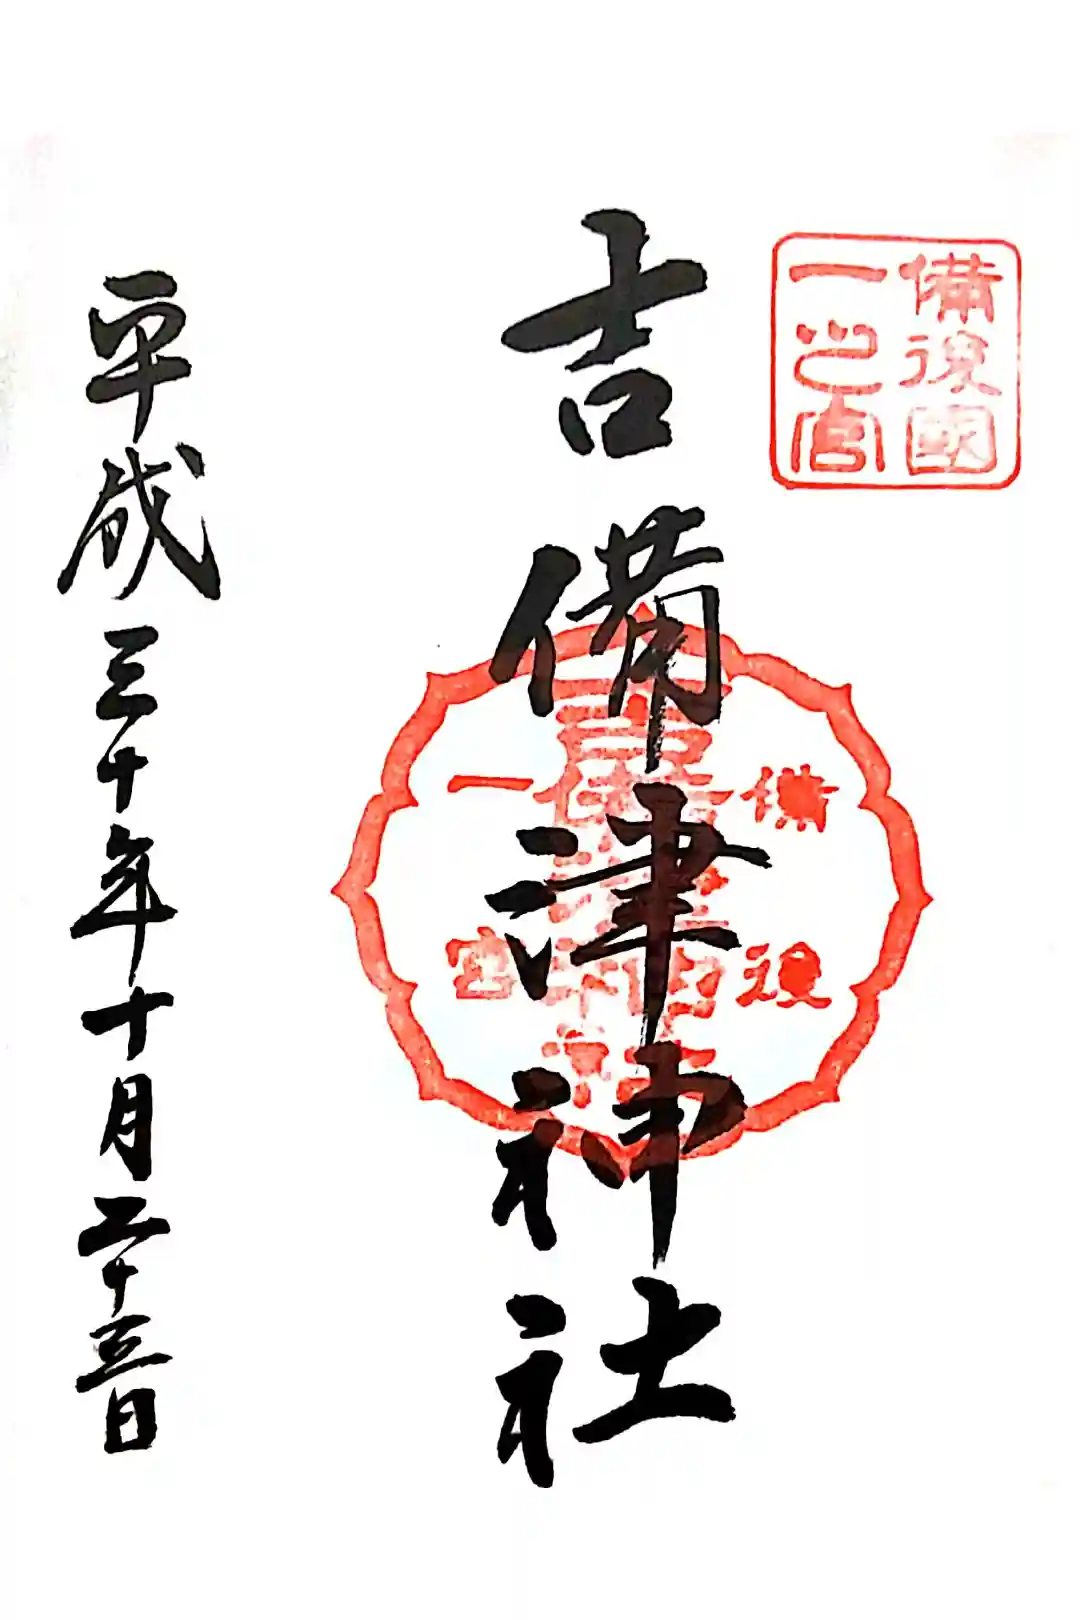 備後國
一之宮
吉備津神社
備後
一宮
平成三十年十月二十五日